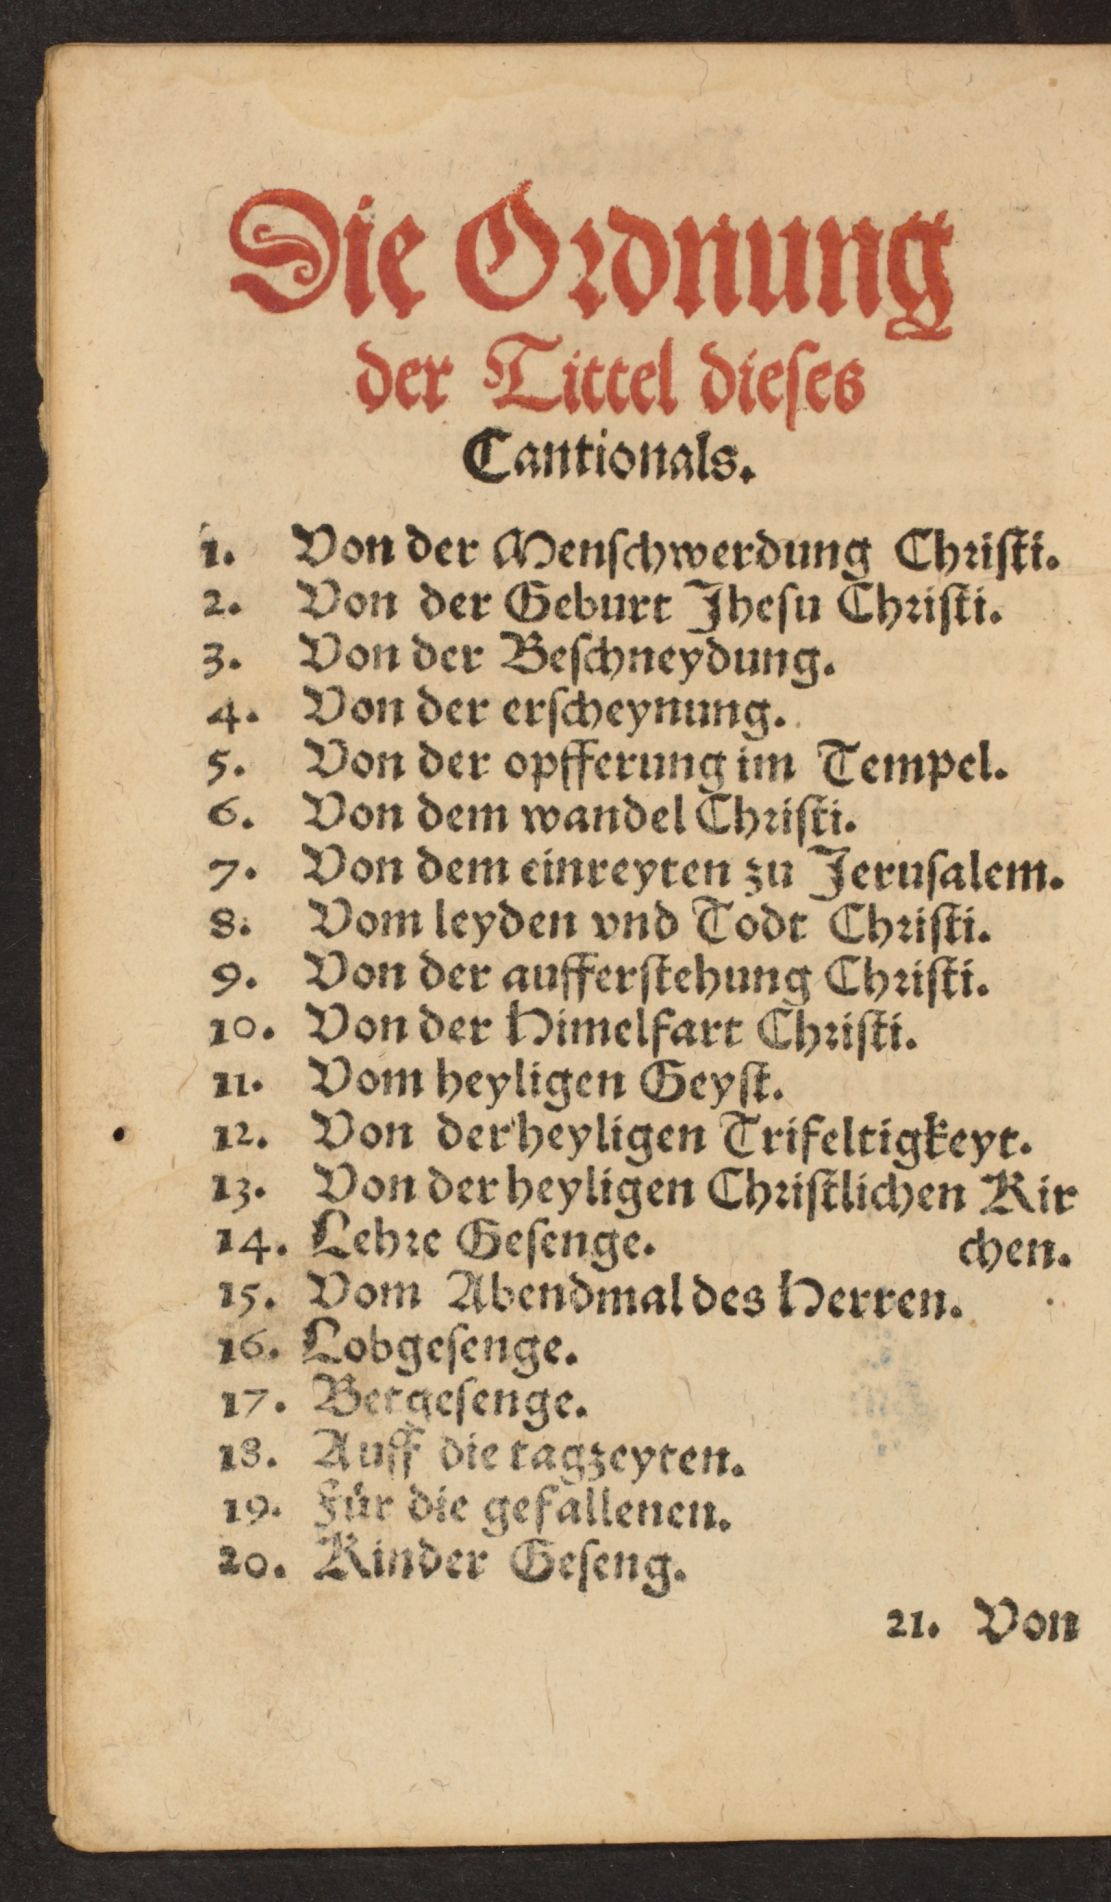 Die Ordnung
der Tittel dieses
Cantionals.
1. Von der Menschwerdung Christi.
2. Von der Geburt Jhesu Christi.
3. Von der Beschneydung.
4. Von der erscheynung.
5. Von der opfferung im Tempel.
6. Von dem wandel Christi.
7. Von dem einreyten zu Jerusalem.
8. Vom leyden vnd Todt Christi.
9. Von der aufferstehung Christi.
10. Von der Himelfart Christi.
11. Vom heyligen Geyst.
12. Von der heyligen Trifeltigkeyt.
13. Von der heyligen Christlichen Kir
14. Lehre Gesenge. chen.
15. Vom Abendmal des Herren.
16. Lobgesenge.
17. Betgesenge.
18. Auff die tagzeyten.
19. Für die gefallenen.
20. Kinder Geseng.
21. Von